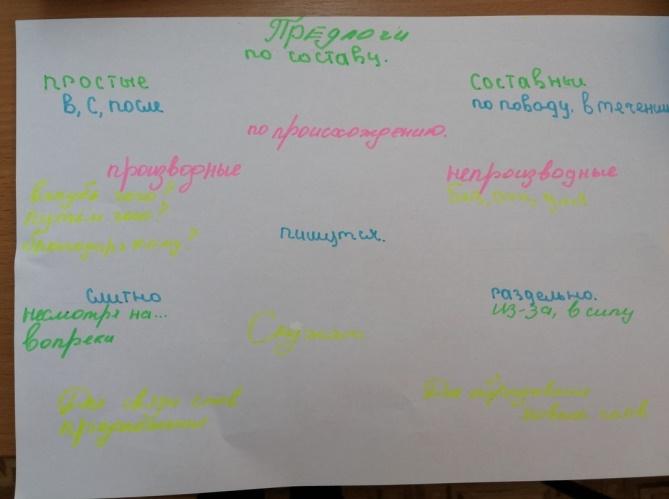 Предлоги
по составу.
простые
составные
в, с, после
по поводу, в течении
по происхождению.
производные
непроизводные
чего?
без,
путём чего?
благодаря кому?
пишутся.
слитно
раздельно.
несмотря на...
из-за, в силу
вопреки
Служат
Для связи слов
Для образования
предложения
новых слов